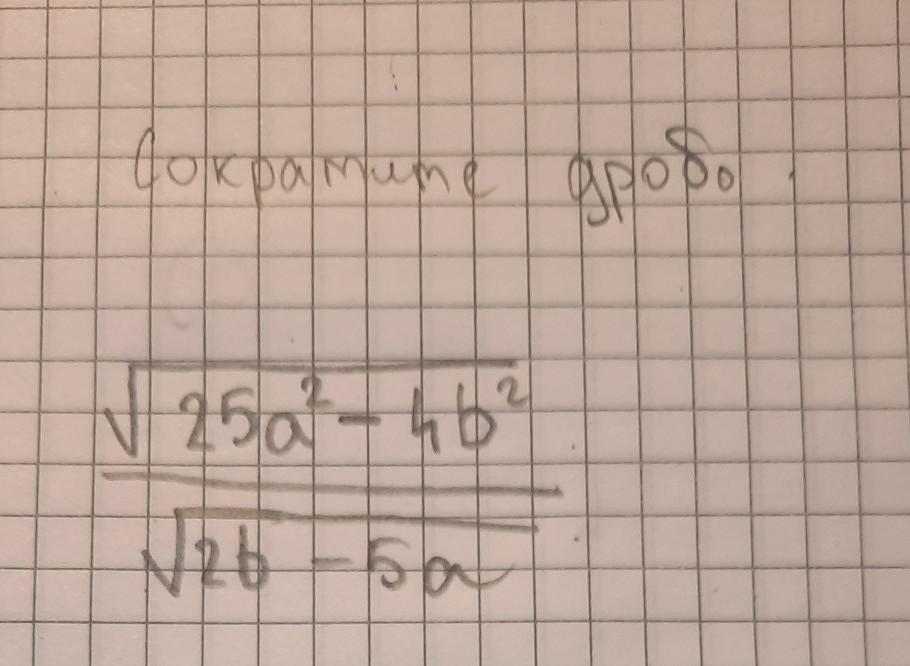 Сократите дробь.
√25a² - 4b²
√2b - 5a